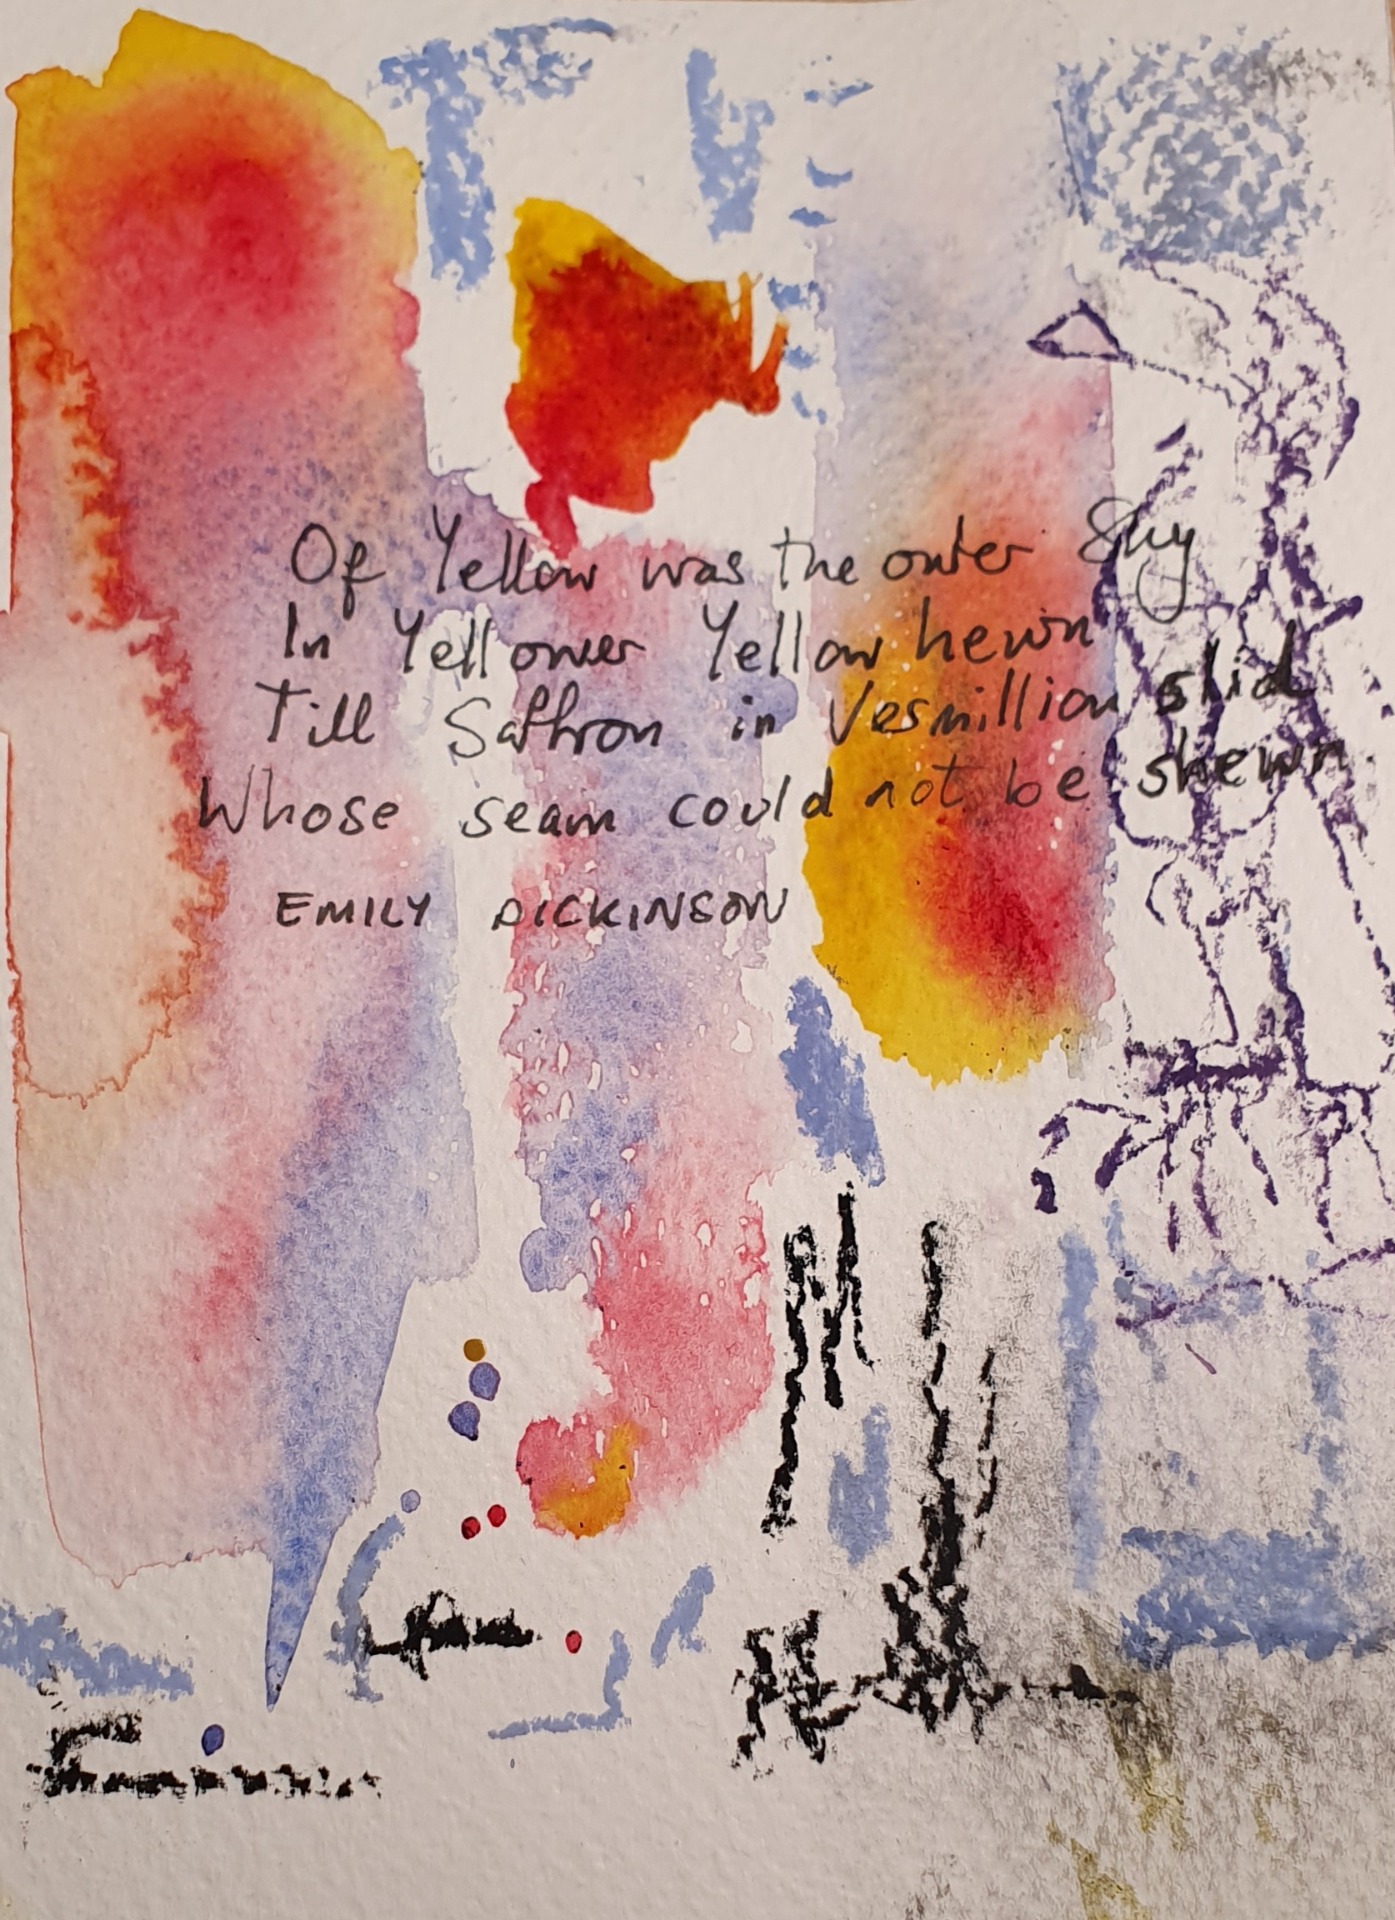 Of Yellow was the outer Sky
In Yellower Yellow hewn
Till Saffron in Vermillion slid
Whose seam could not be shewn
EMILY DICKINSON